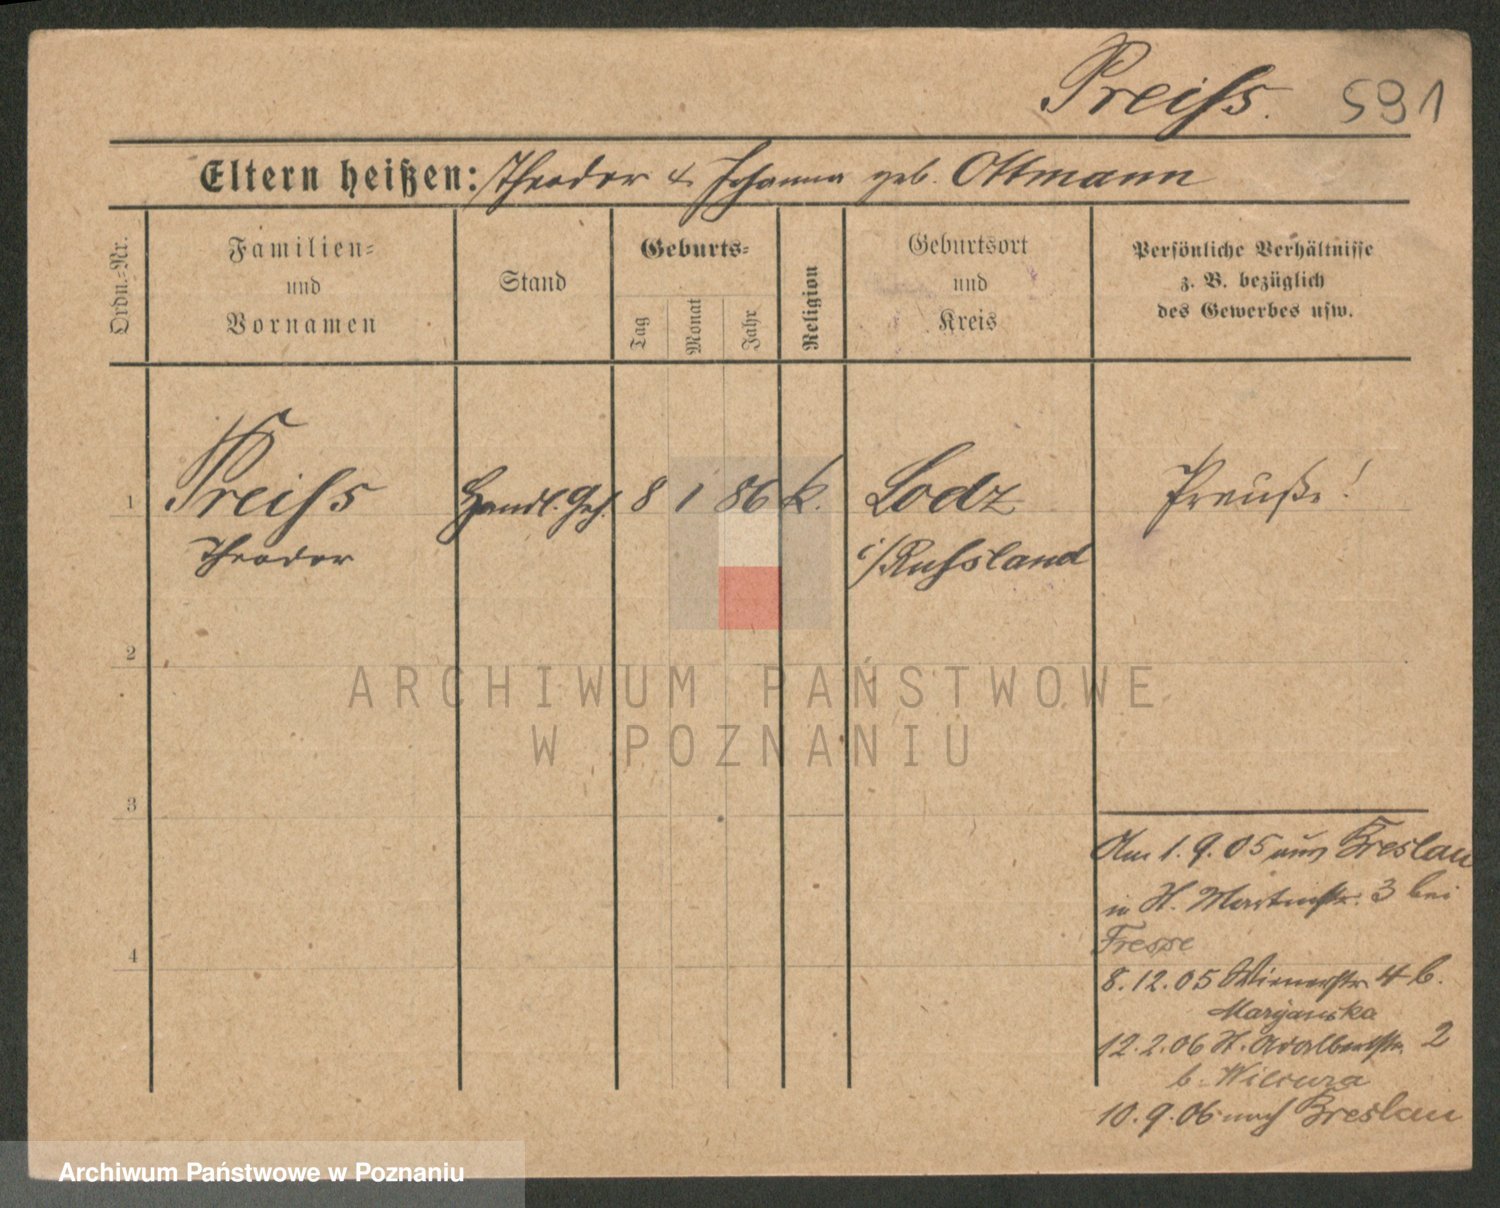 Preiss. 591
Eltern heißen: Theodor & Johanna geb. Ottmann
Ordn.-Nr.
Familien-
und
Vornamen
Stand
Geburts-
Tag
Monat
Jahr
Religion
Geburtsort
und
Kreis
Persönliche Verhältnisse
z. B. bezüglich
des Gewerbes usw.
1 Preiss Handl. Geh. 8 1 86 k. Lodz Preuße!
Theodor i/Russland
2
ARCHIWUM PAŃSTWOWE
W POZNANIU
3
Am 1.9.05 aus Breslau
in St. Martinstr. 3 bei
4
8.12.05 Wienerstr. 4 b.
Maryanska
12.2.06 St. Adalbertstr. 2
b.
10.9.06 nach Breslau
Archiwum Państwowe w Poznaniu